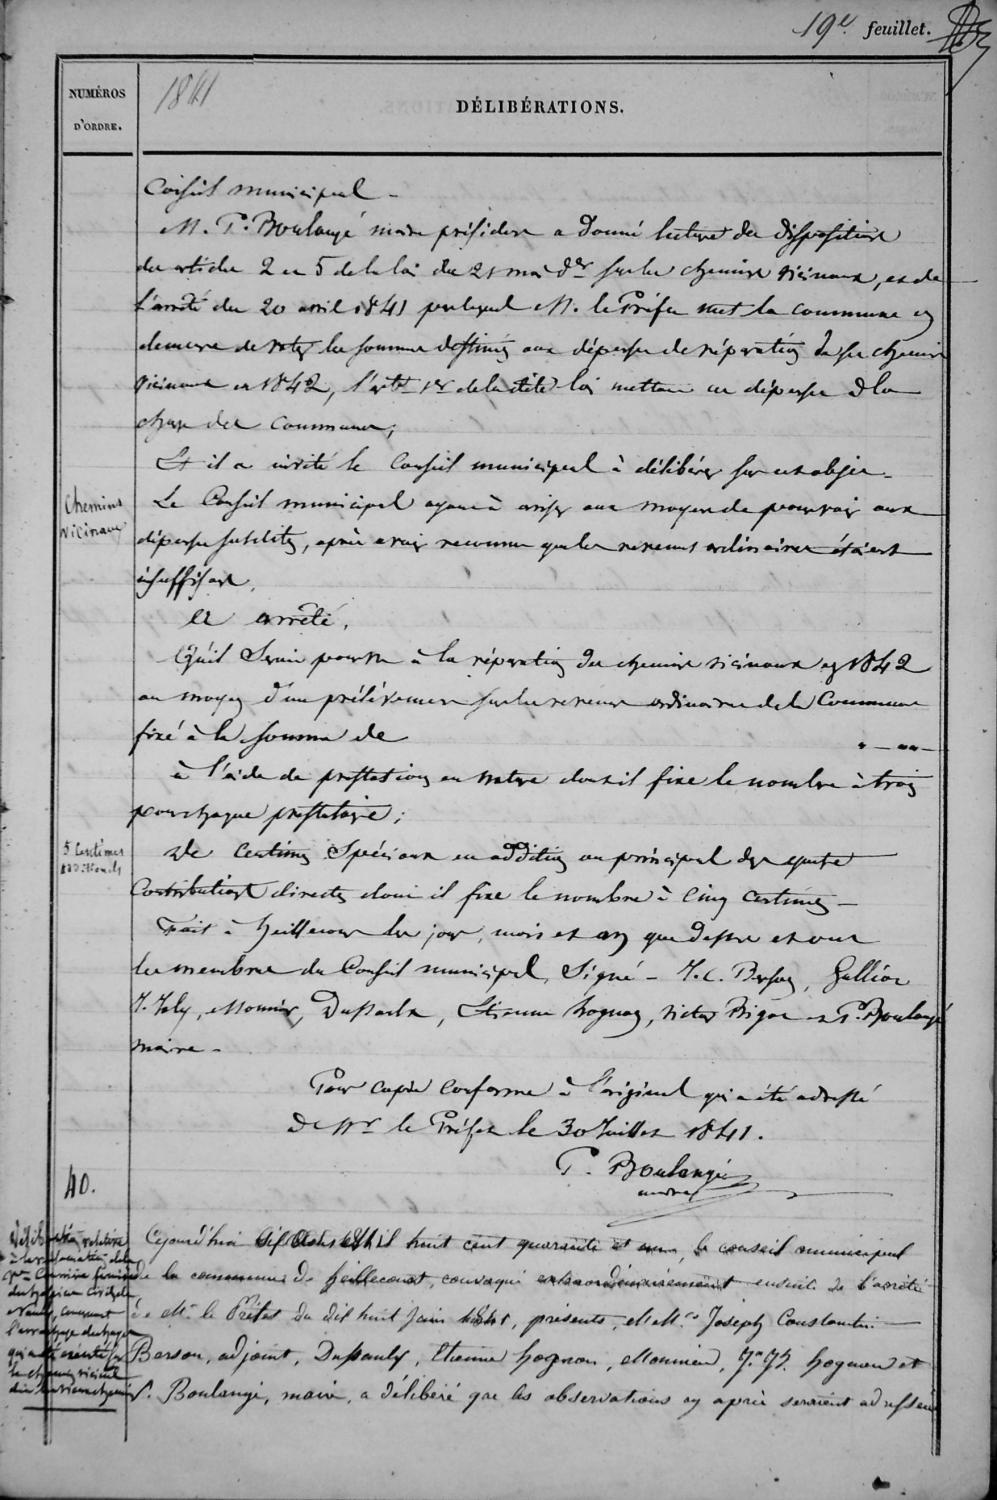 19e. feuillet.
NUMÉROS
D'ORDRE.
1841
DÉLIBÉRATIONS.
Conseil municipal -
M. P. Boulangé maire président a donné lecture des dispositions
des articles 2 et 5 de la loi du 21 mai der sur les chemins vicinaux, et de
l'arrêté du 20 avril 1841 par lequel M. le Préfet met la commune en
demeure de voter les sommes destinées aux dépenses de réparation de ses chemins
vicinaux en 1842, l'art 1er de la dite loi mettant ces dépenses à la
charge des communes;
Et il a invité le Conseil municipal à délibérer sur cet objet -
Chemins
vicinaux
Le Conseil municipal ayant à aviser aux moyens de pourvoir aux
dépenses susdites, après avoir reconnu que les revenus ordinaires étaient
insuffisants,
a arrêté,
Qu'il serait pourvu à la réparation des chemins vicinaux en 1842
au moyen d'un prélèvement sur les revenus ordinaires de la Commune
fixé à la somme de " — "" —
à l'aide de prestations en nature dont il fixe le nombre à trois
pour chaque prestataire;
5 Centimes
additionnels
De Centimes Spéciaux en addition au principal des quatre
Contributions directes dont il fixe le nombre à cinq centimes -
Fait à heillecourt les jour, mois et an que dessus et ont
les membres du Conseil municipal, Signé - J. C. Berson, Gallion
J. Joly, Mounier, Dussaulx, Etienne hognon, victor Bigot et P. Boulangé
maire -
Pour copie conforme à l'original qui a été adressé
à Mr le Préfet le 30 Juillet 1841.
P. Boulangé
maire
40.
Délibération relative
à la réclamation de la
commune
du
Nancy, concernant
l'arrachage des haies
qui a été exécuté sur
le chemin vicinal
dit
Cejourd'hui mil huit cent quarante et un, le conseil municipal
de la commune de heillecourt, convoqué extraordinairement ensuite de l'arrêté
de Mr le Préfet du dix huit Juin 1841, présents, MM.rs Joseph Constantin
Berson, adjoint, Dussaulx, Etienne hognon, Mounier, J.n J.h hognon et
P. Boulangé, maire, a délibéré que les observations ci après seraient adressées